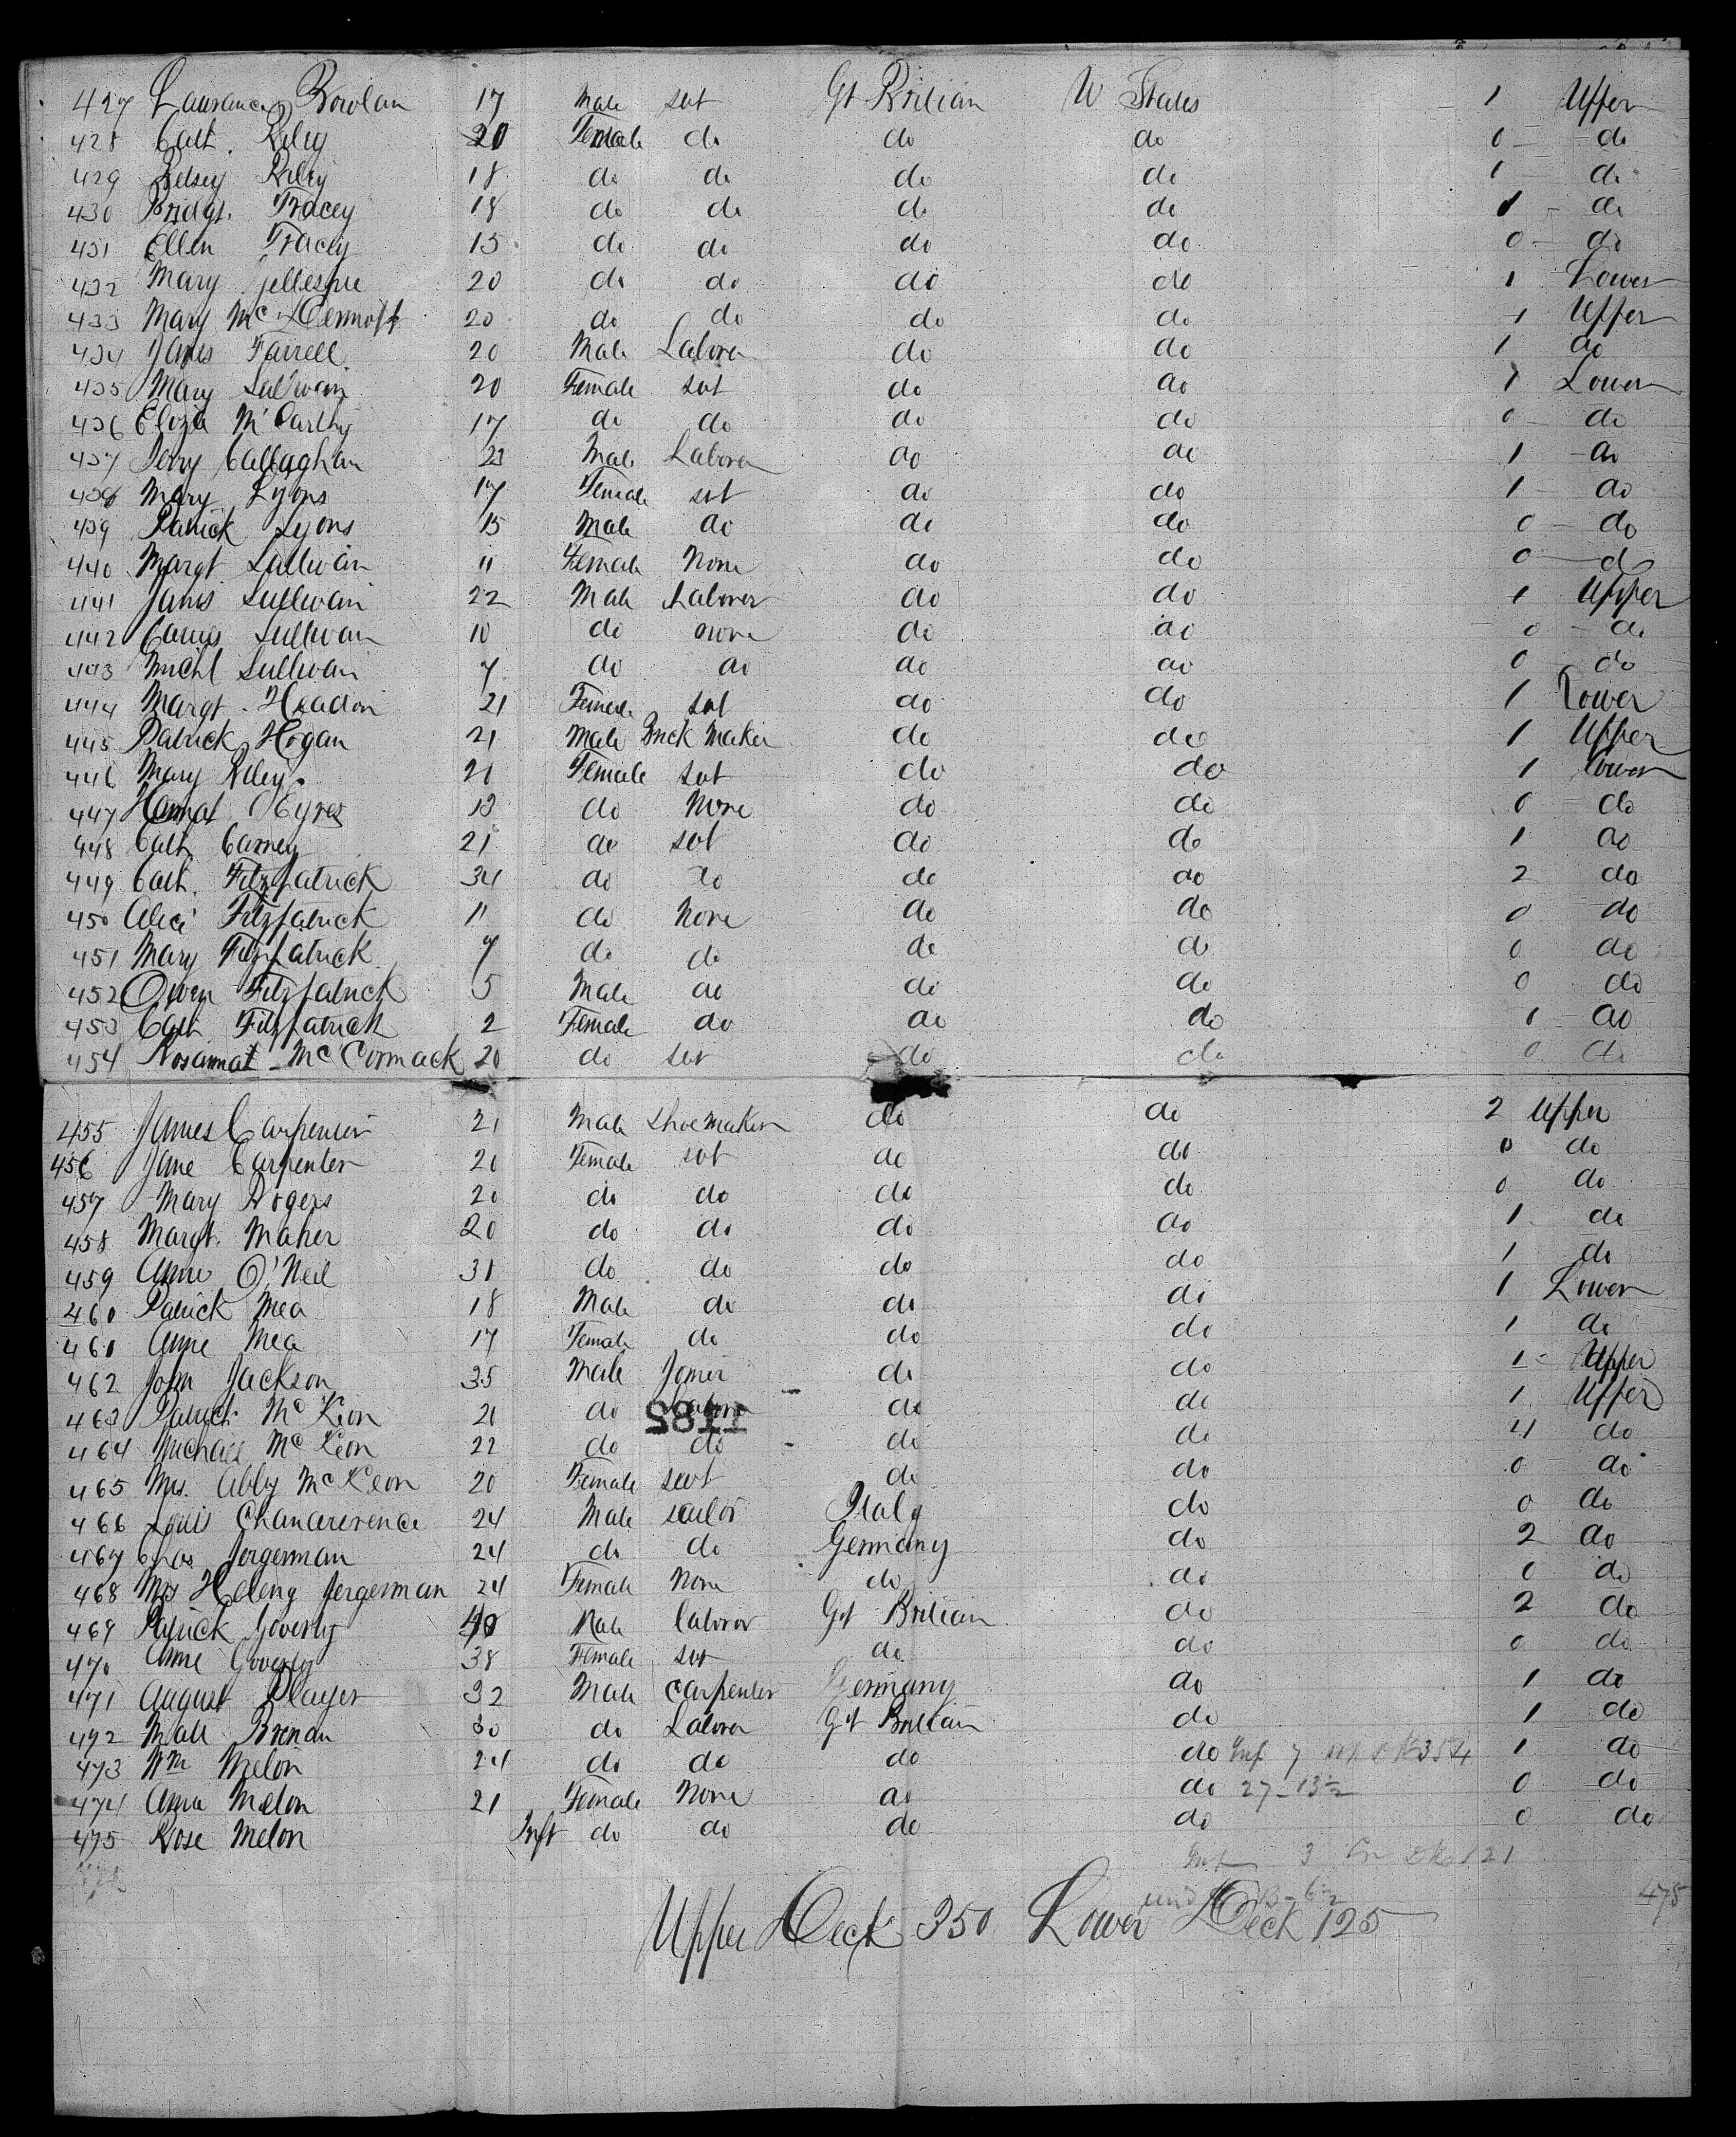 427 Laurance Rowlan 17 Male svt Gt Britian U States 1 Upper
428 Cath. Riley 20 Female do do do 0 do
429 Betsey Riley 18 do do do do 1 do
430 Bridgt. Tracey 18 do do do do 1 do
431 Ellen Tracey 15 do do do do 0 do
432 Mary Gellespie 20 do do do do 1 Lower
433 Mary Mc Dermott 20 do do do do 1 Upper
434 James Farrell 20 Male Laborer do do 1 do
435 Mary Sulivan 20 Female svt do do 1 Lower
436 Eliza M'Carthy 17 do do do do 0 do
437 Jerry Callaghan 23 Male Laborer do do 1 do
438 Mary Lyons 17 Female svt do do 1 do
439 Patrick Lyons 15 Male do do do 0 do
440 Margt Sullivan 11 Female None do do 0 do
441 James Sullivan 22 Male Laborer do do 1 Upper
442 Sullivan 10 do none do do 0 do
443 Michl Sullivan 7 do do do do 0 do
444 Margt. Headon 21 Female svt do do 1 Lower
445 Patrick Hogan 21 Male Brick Maker do do 1 Upper
446 Mary Riley 21 Female svt do do 1 Lower
447 Hannah 13 do None do do 0 do
448 Cath Carney 21 do svt do do 1 do
449 Cath. Fitzpatrick 34 do do do do 2 do
450 Alice Fitzpatrick 11 do None do do 0 do
451 Mary Fitzpatrick 7 do do do do 0 do
452 Owen Fitzpatrick 5 Male do do do 0 do
453 Cath Fitzpatrick 2 Female do do do 1 do
454 Rosannat Mc Cormack 20 do svt do do 0 do
455 James Carpenter 21 Male Shoemaker do do 2 Upper
456 Jane Carpenter 20 Female svt do do 0 do
457 Mary Rogers 20 do do do do 0 do
458 Margt. Maher 20 do do do do 1 do
459 Anne O'Neil 31 do do do do 1 do
460 Patrick Mea 18 Male do do do 1 Lower
461 Anne Mea 17 Female do do do 1 do
462 John Jackson 35 Male Joiner do do 1 Upper
463 Patrick Mc Keon 21 do Laborer do do 1 Upper
464 Michael Mc Keon 22 do do do do 4 do
465 Mrs. Abby McKeon 20 Female svt do do 0 do
466 Louis 24 Male sailor Italy do 0 do
467 Chas Jergerman 24 do do Germany do 2 do
468 Mrs Heleny Jergerman 24 Female None do do 0 do
469 Patrick Goverly 40 Male laborer Gt Britian do 2 do
470 Anne Goverly 38 Female svt do do 0 do
471 August Player 32 Male Carpenter Germany do 1 do
472 Brenan 30 do Laborer Gt Britian do 1 do
473 Wm Melon 24 do do do do 1 do
474 Anna Melon 21 Female None do do 27-13½ 0 do
475 Rose Melon Inft do do do do 0 do
475
Upper Deck 350 Lower Deck 125